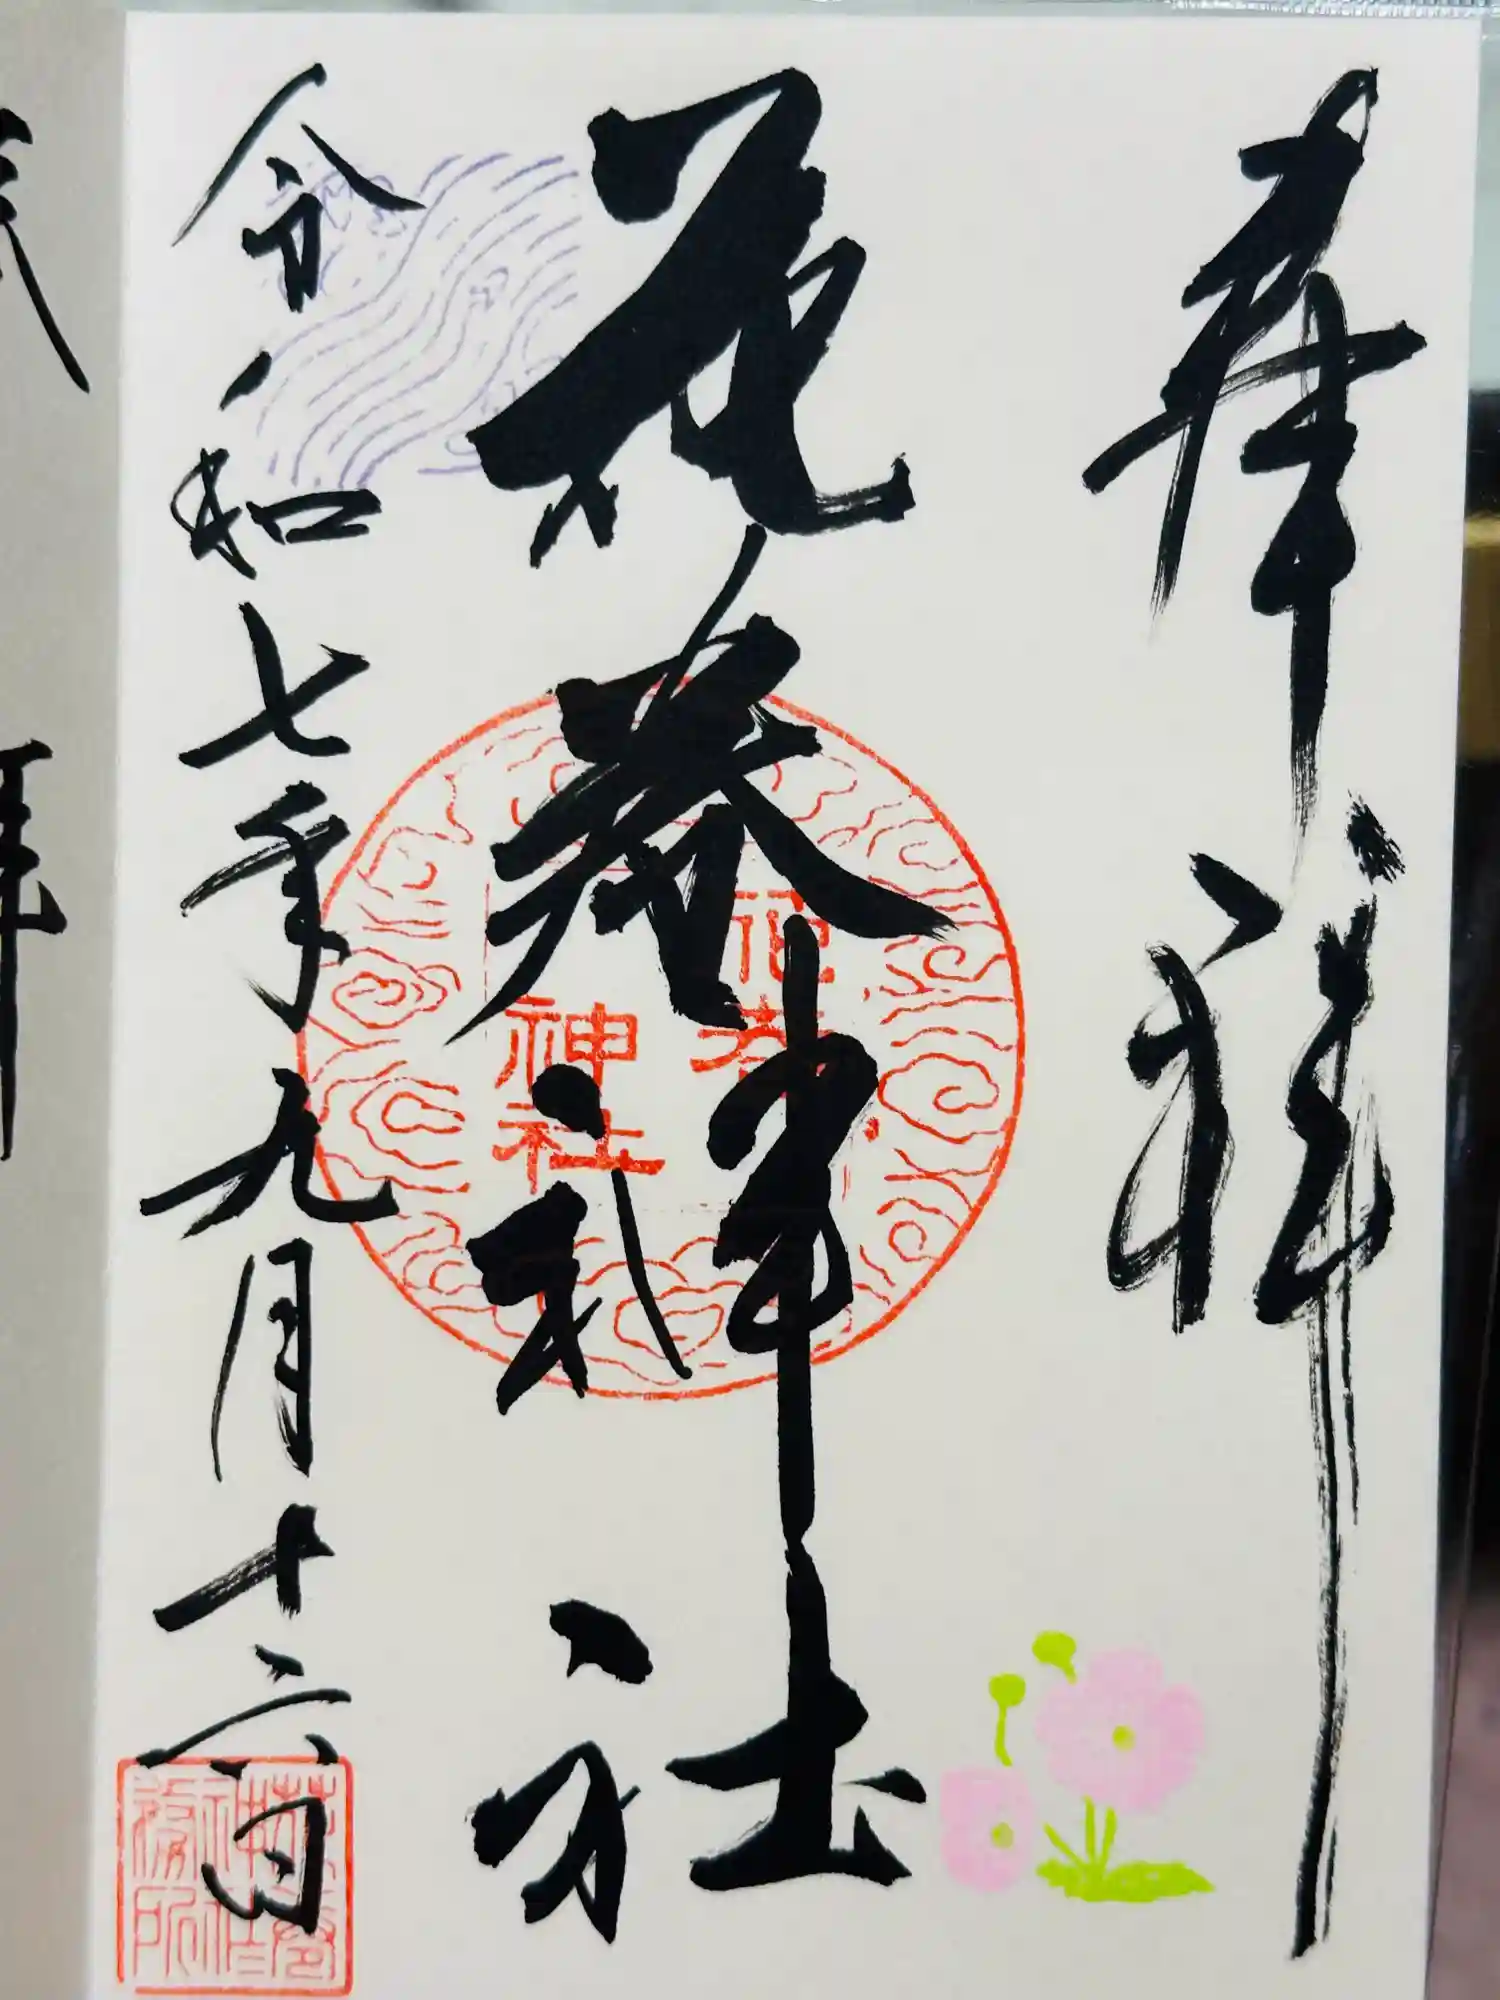 奉拝
花巻神社
花巻
神社
令和七年九月十二日
花巻
神社
務所